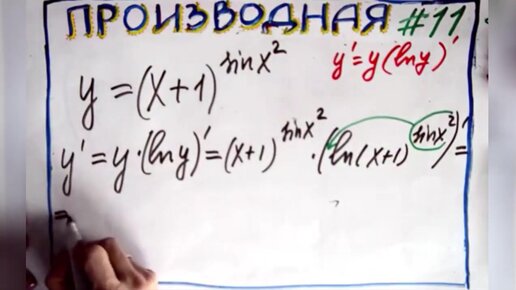 ПРОИЗВОДНАЯ #11
y' = y(ln y)'
y = (x+1)^sin x²
y' = y·(ln y)' = (x+1)^sin x² · (ln(x+1)^sin x²)' =
=